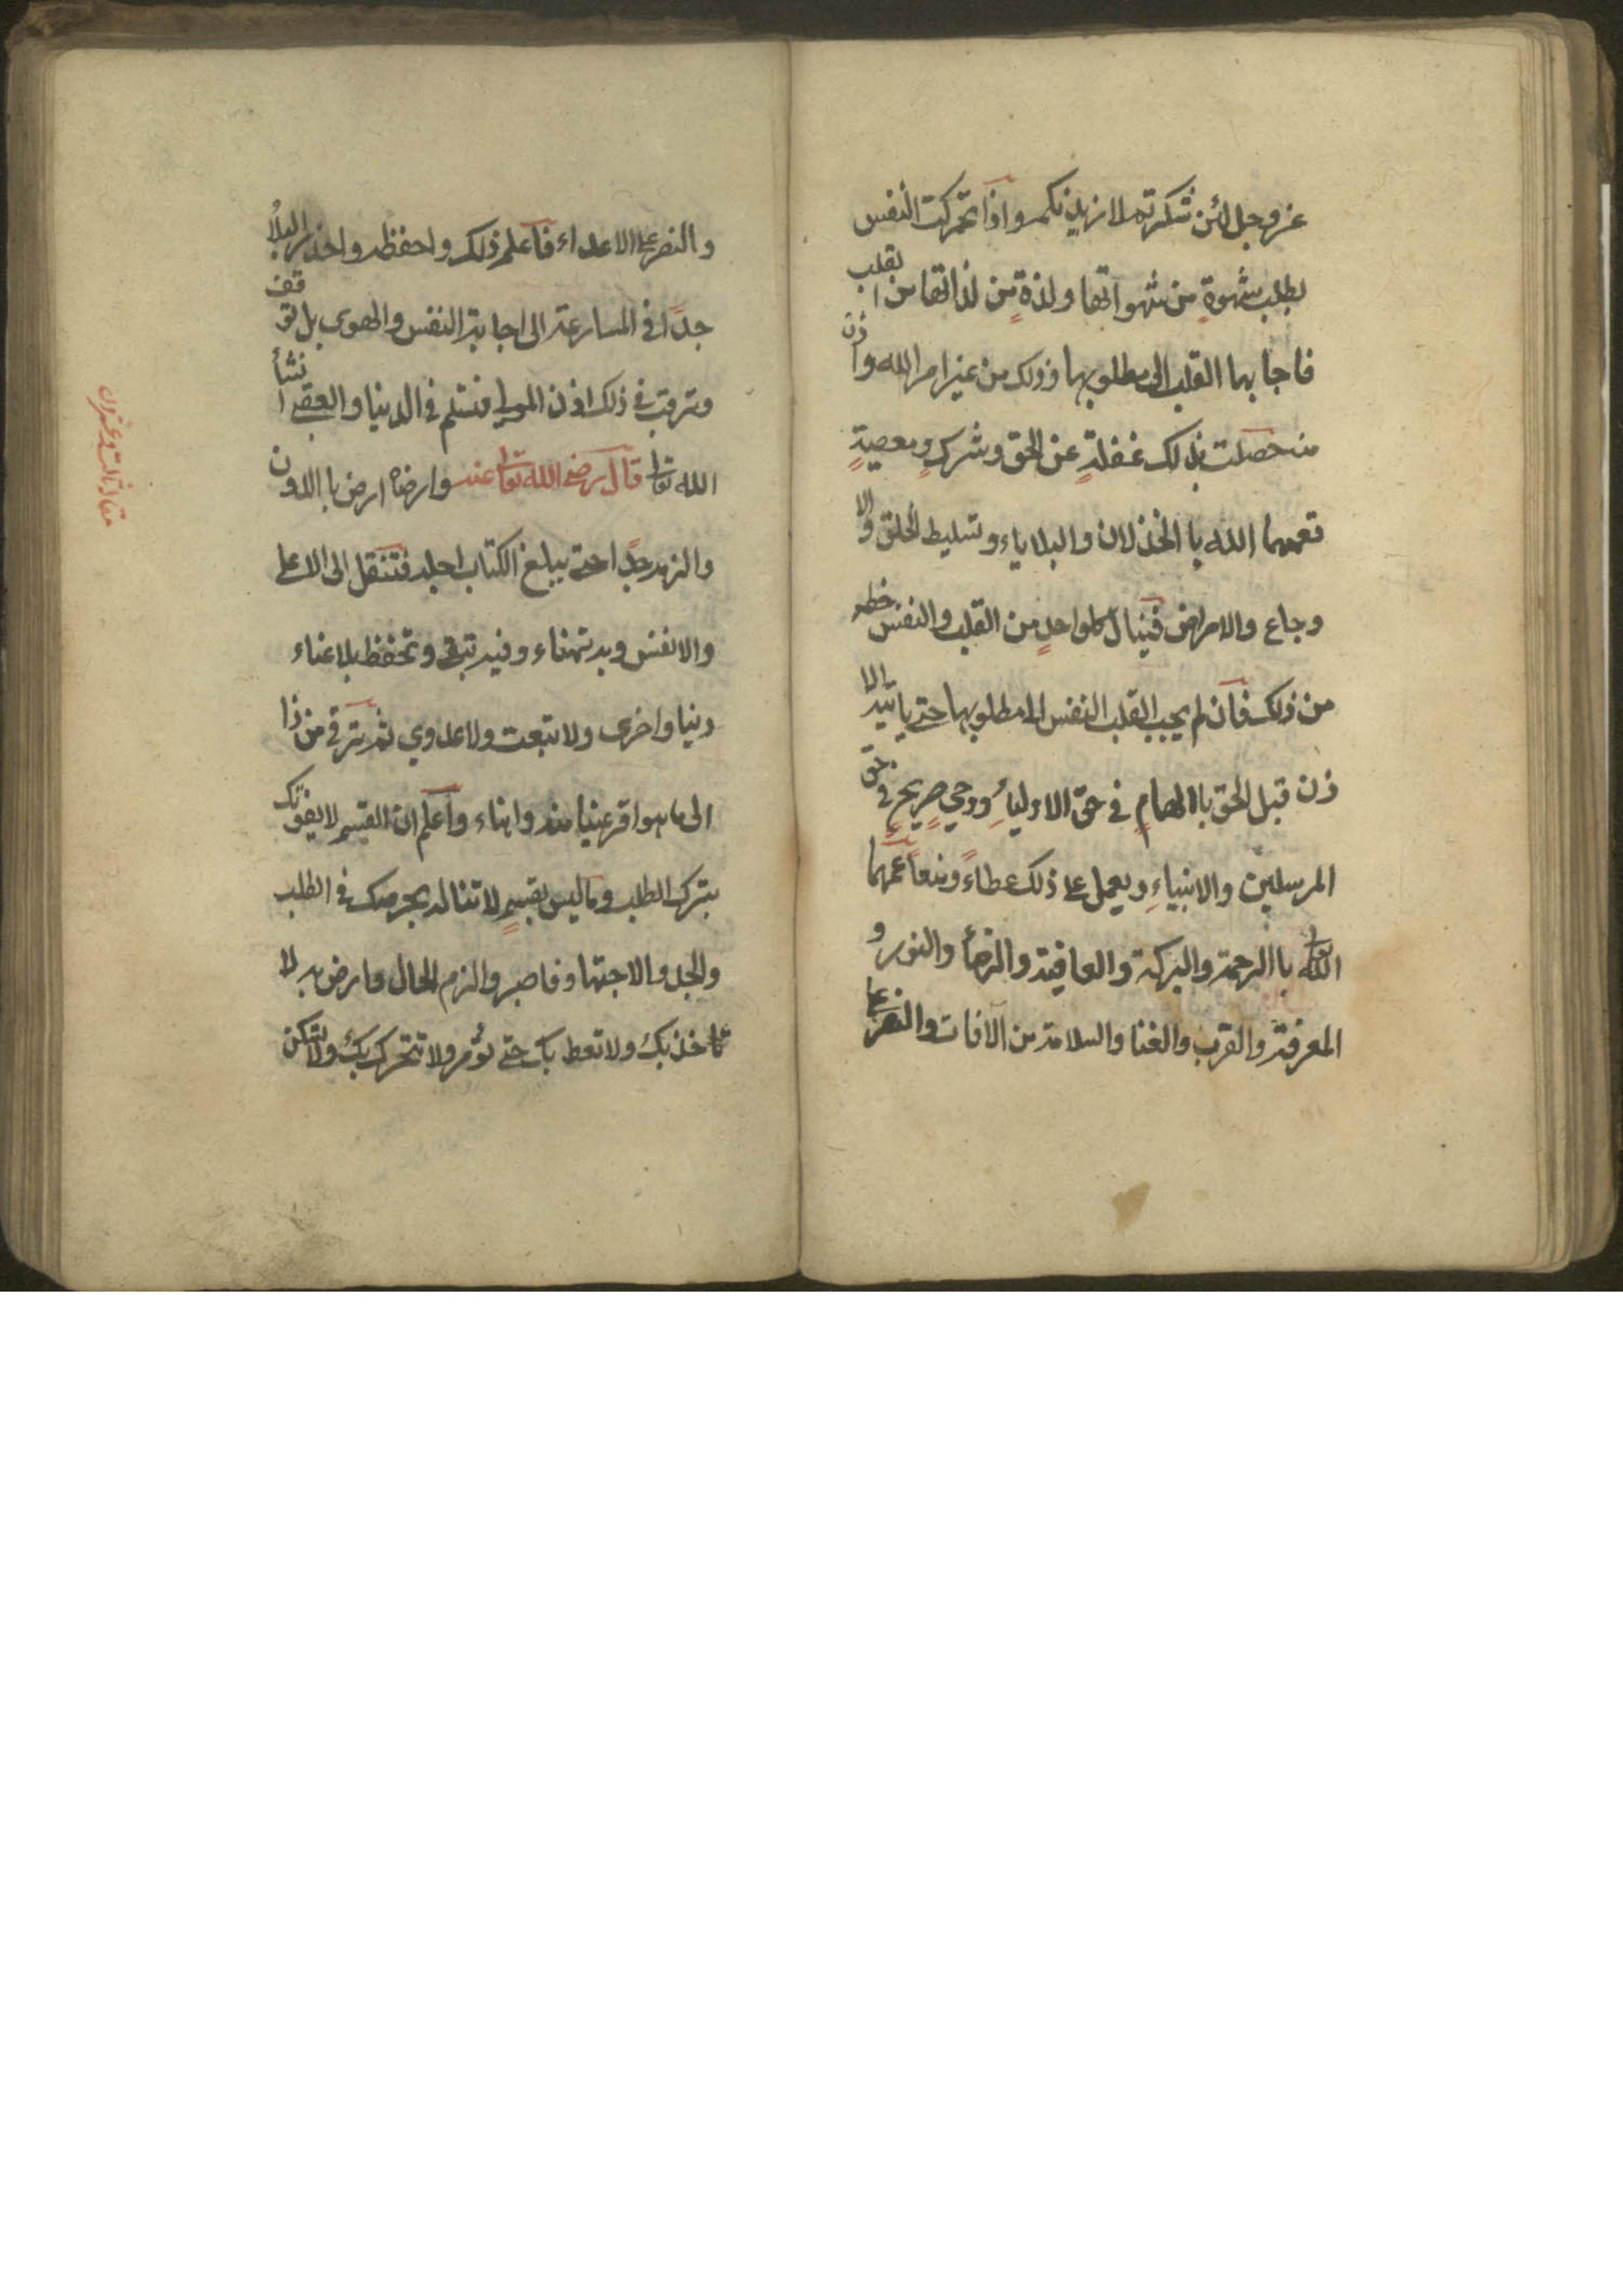 عز وجل لئن شكرتم لازيدنكم واذا تحركت النفس
بطلب شهوةٍ من شهواتها ولذةٍ من لذاتها من القلب
فاجابها القلب الى مطلوبها وذلك من غير امر الله واذن
منه حصلت بذلك غفلةٍ عن الحق وشركٍ ومعصيةٍ
فعمهما الله باالخذلان والبلاياء وتسليط الخلق والا
وجاع والامراض فينال كلواحدٍ من القلب والنفس خطه
من ذلك فان لم يجب القلب النفس الى مطلوبها حتى ياتيه الا
ذن قبل الحق باالهامٍ في حق الاولياءِ ووحيٍ صريحٍ في حق
المرسلين والانبياءِ ويعمل على ذلك عطاءً ومنعاً عمهما
الله تعالى باالرحمة والبركة والعافية والرضأ والنور و
المعرفة والقرب والغنا والسلامة من الآفات والنصر على
والنصر على الاعداء فاعلم ذلك واحفظه واحذر البلأ
جداً في المسارعة الى اجابة النفس والهوى بل توقف
وترقب في ذلك اذن المولى فتسلم في الدنيا والعقبى انشأ
الله تعالى قال رضي الله تعالى عنه وارضاه ارض باالدون
والزمه جداً حتى يبلغ الكتاب اجله فتنقل الى الاعلى
والانفس وبه تهناء وفيه تبقى وتحفظ بلا عناء
دنيا واخرى ولا تبعت ولا عدوي ثم ترقى من ذا
الى ما هو اقر عينا منه واهناء واعلم ان القسم لا يفوتك
بترك الطلب وما ليس بقسمٍ لا تناله بحرصك في الطلب
والجد والاجتهاد فاصبر والزم الحال وارض به لا
تاخذ بك ولا تعط بك حتى تؤمر ولا تتحرك بك ولا تسكن
مقاله ثالث وعشرون